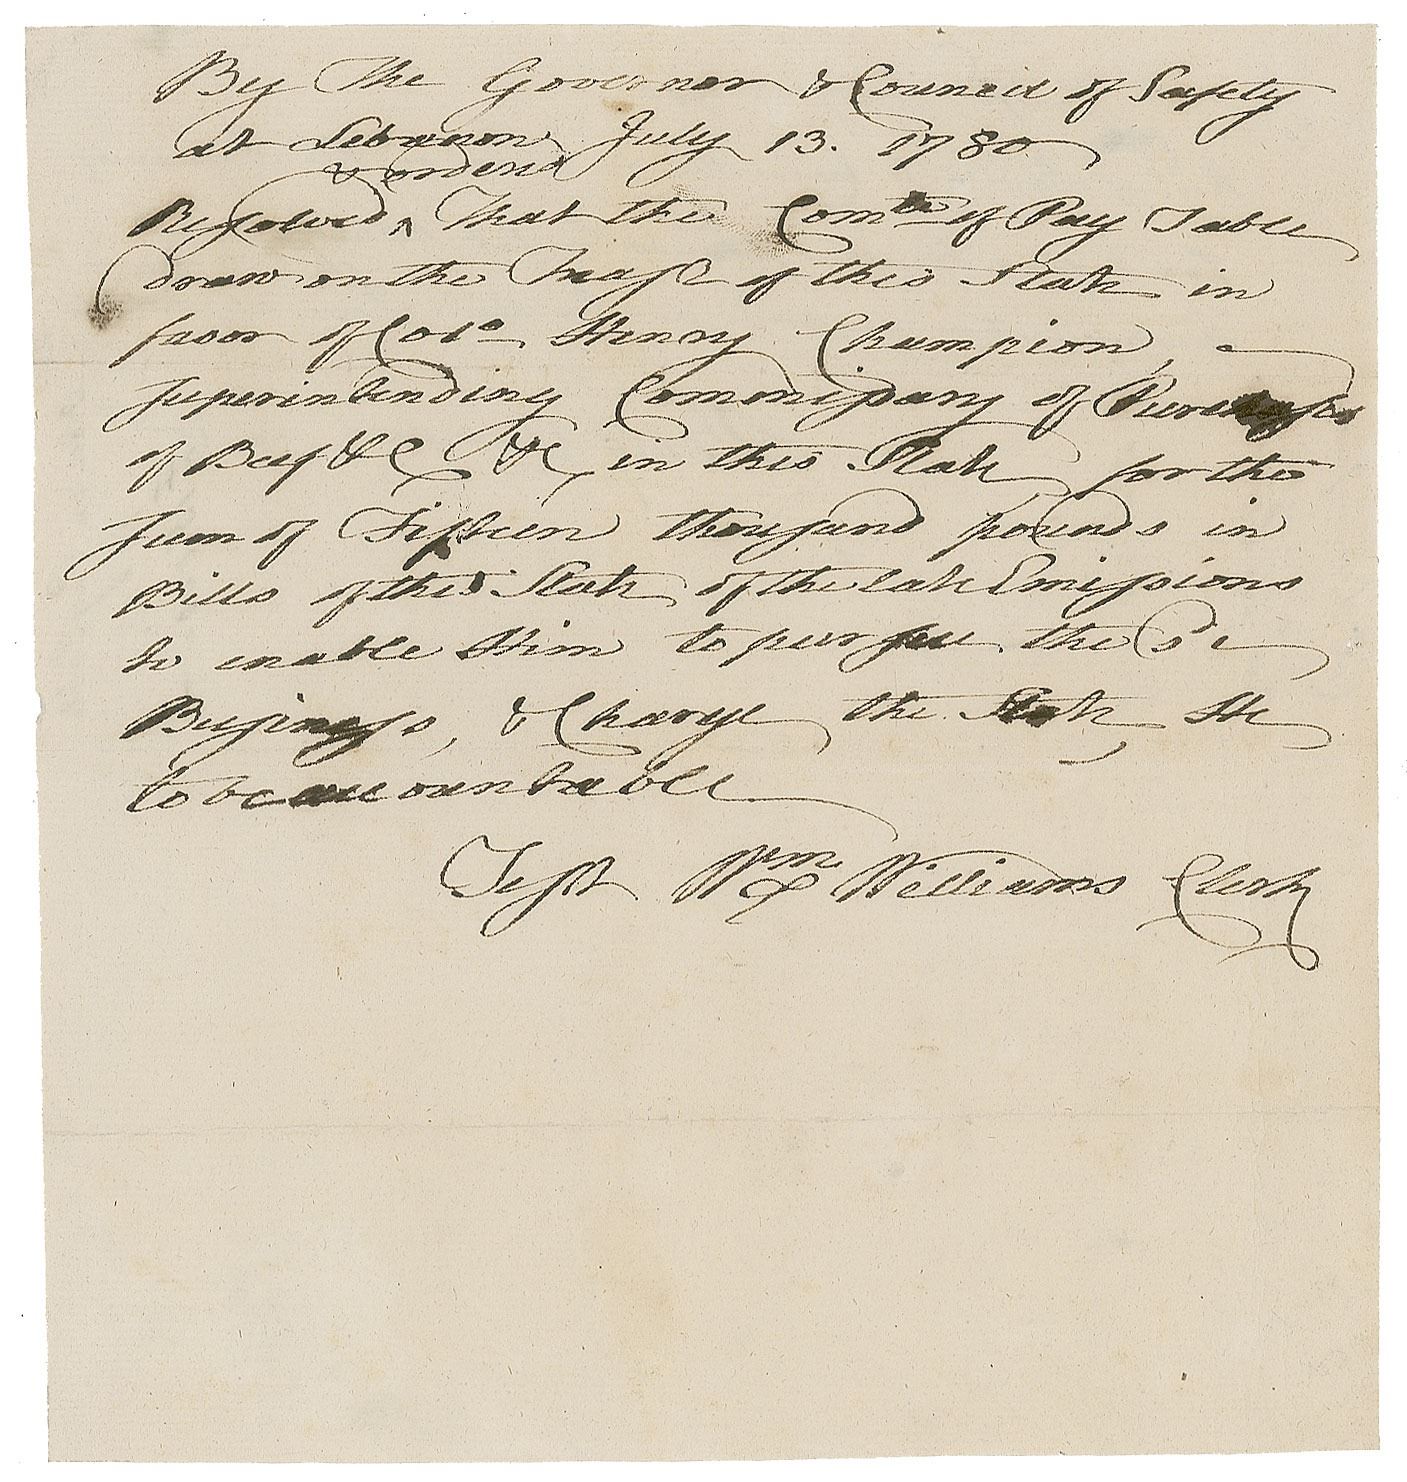 By The Governor & Council of Safety
at Lebanon July 13. 1780
& orderd
Resolved ^ That the Comtee of Pay Table
draw on the Treasr of this State in
favor of Colo. Henry Champion,
superintending Commissary of Purchases
of Beef &c &c in this State for the
sum of Fifteen thousand pounds in
Bills of this State of the late Emissions
to enable Him to pursue the sd
Business, & Charge the State, He
to be accountable
Test Wm Williams Clerk